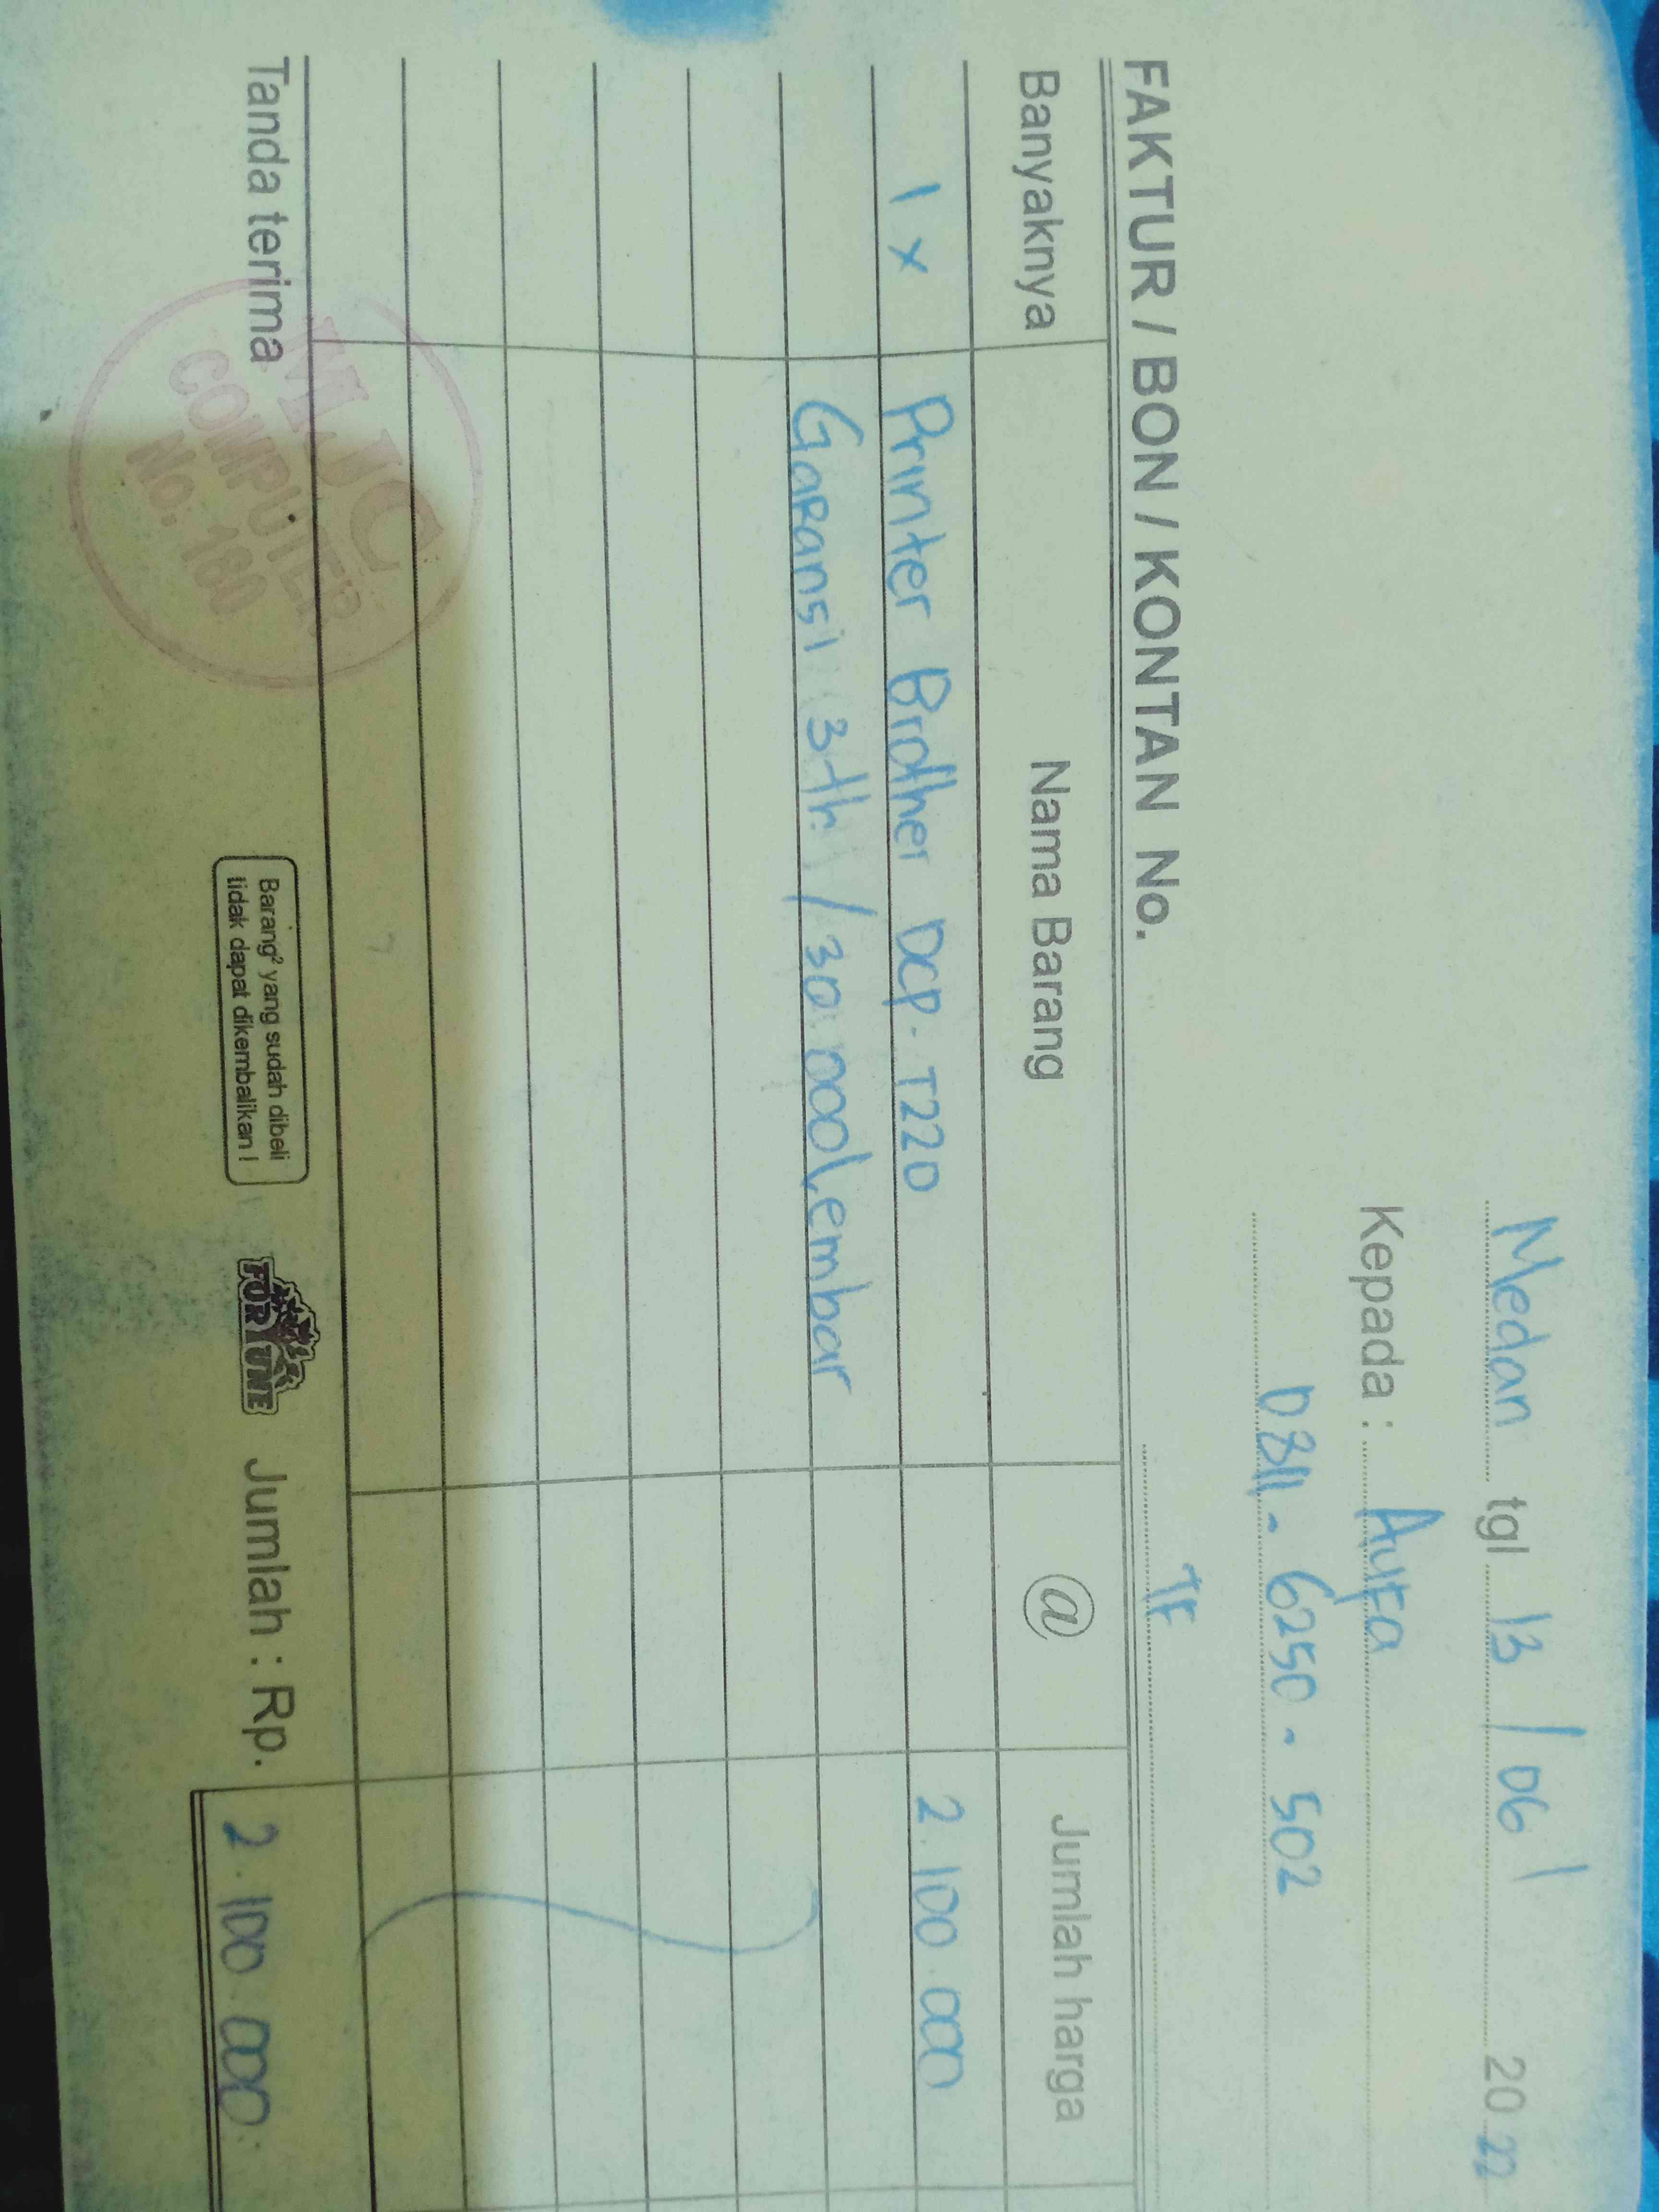 Medan tgl 13 / 06 / 20 22
Kepada : Aufa
0811 - 6250 - 502
FAKTUR / BON / KONTAN No. TF
Banyaknya Nama Barang @ Jumlah harga
1 x Printer Brother DCP - T220 2.100.000
Garansi 3th / 30.000 Lembar
Tanda terima
COMPUTER
No. 160
Barang² yang sudah dibeli
tidak dapat dikembalikan !
FORTUNE
Jumlah : Rp. 2.100.000